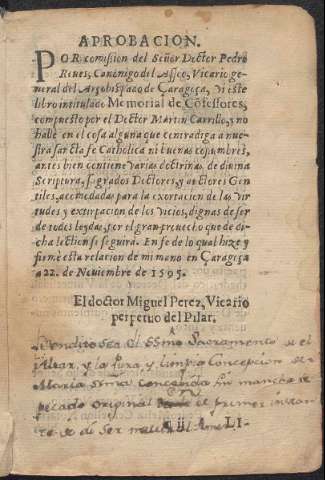 APROBACION.
POR comission del Señor Doctor Pedro
Reues, Canonigo del Asseo, Vicario ge-
neral del Arçobispado de Çaragoça, vi este
libro intitulado Memorial de Cõfessores,
compuesto por el Doctor Martin Carrillo, y no
halle en el cosa alguna que contradiga a nue-
stra sancta fe Catholica ni buenas costumbres,
antes bien contiene varias doctrinas de diuina
Scriptura, sagrados Doctores, y auctores Gen-
tiles, acomodadas para la exortacion de las vir
tudes y extirpacion de los vicios, dignas de ser
de todos leydas, por el gran prouecho que de di-
cha lection se seguira. En fe de lo qual hize y
firmè esta relacion de mi mano en Çaragoça
a 22. de Nouiembre de 1595.
El doctor Miguel Perez, Vicario
perpetuo del Pilar.
Bendito sea el SSmo Sacramento de el
Altar, y la pura y limpia Concepcion de
Maria SSma concebida sin mancha de
pecado original en el primer instan
te de su ser natural Amen
LI-